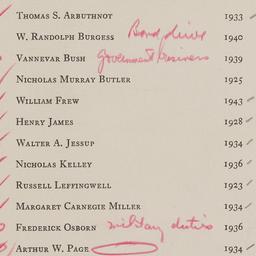 Thomas S. Arbuthnot 1933
W. Randolph Burgess Bond drive 1940
Vannevar Bush Government business 1939
Nicholas Murray Butler 1925
William Frew 1943
Henry James 1928
Walter A. Jessup 1934
Nicholas Kelley 1936
Russell Leffingwell 1923
Margaret Carnegie Miller 1934
Frederick Osborn military duties 1936
Arthur W. Page 1934